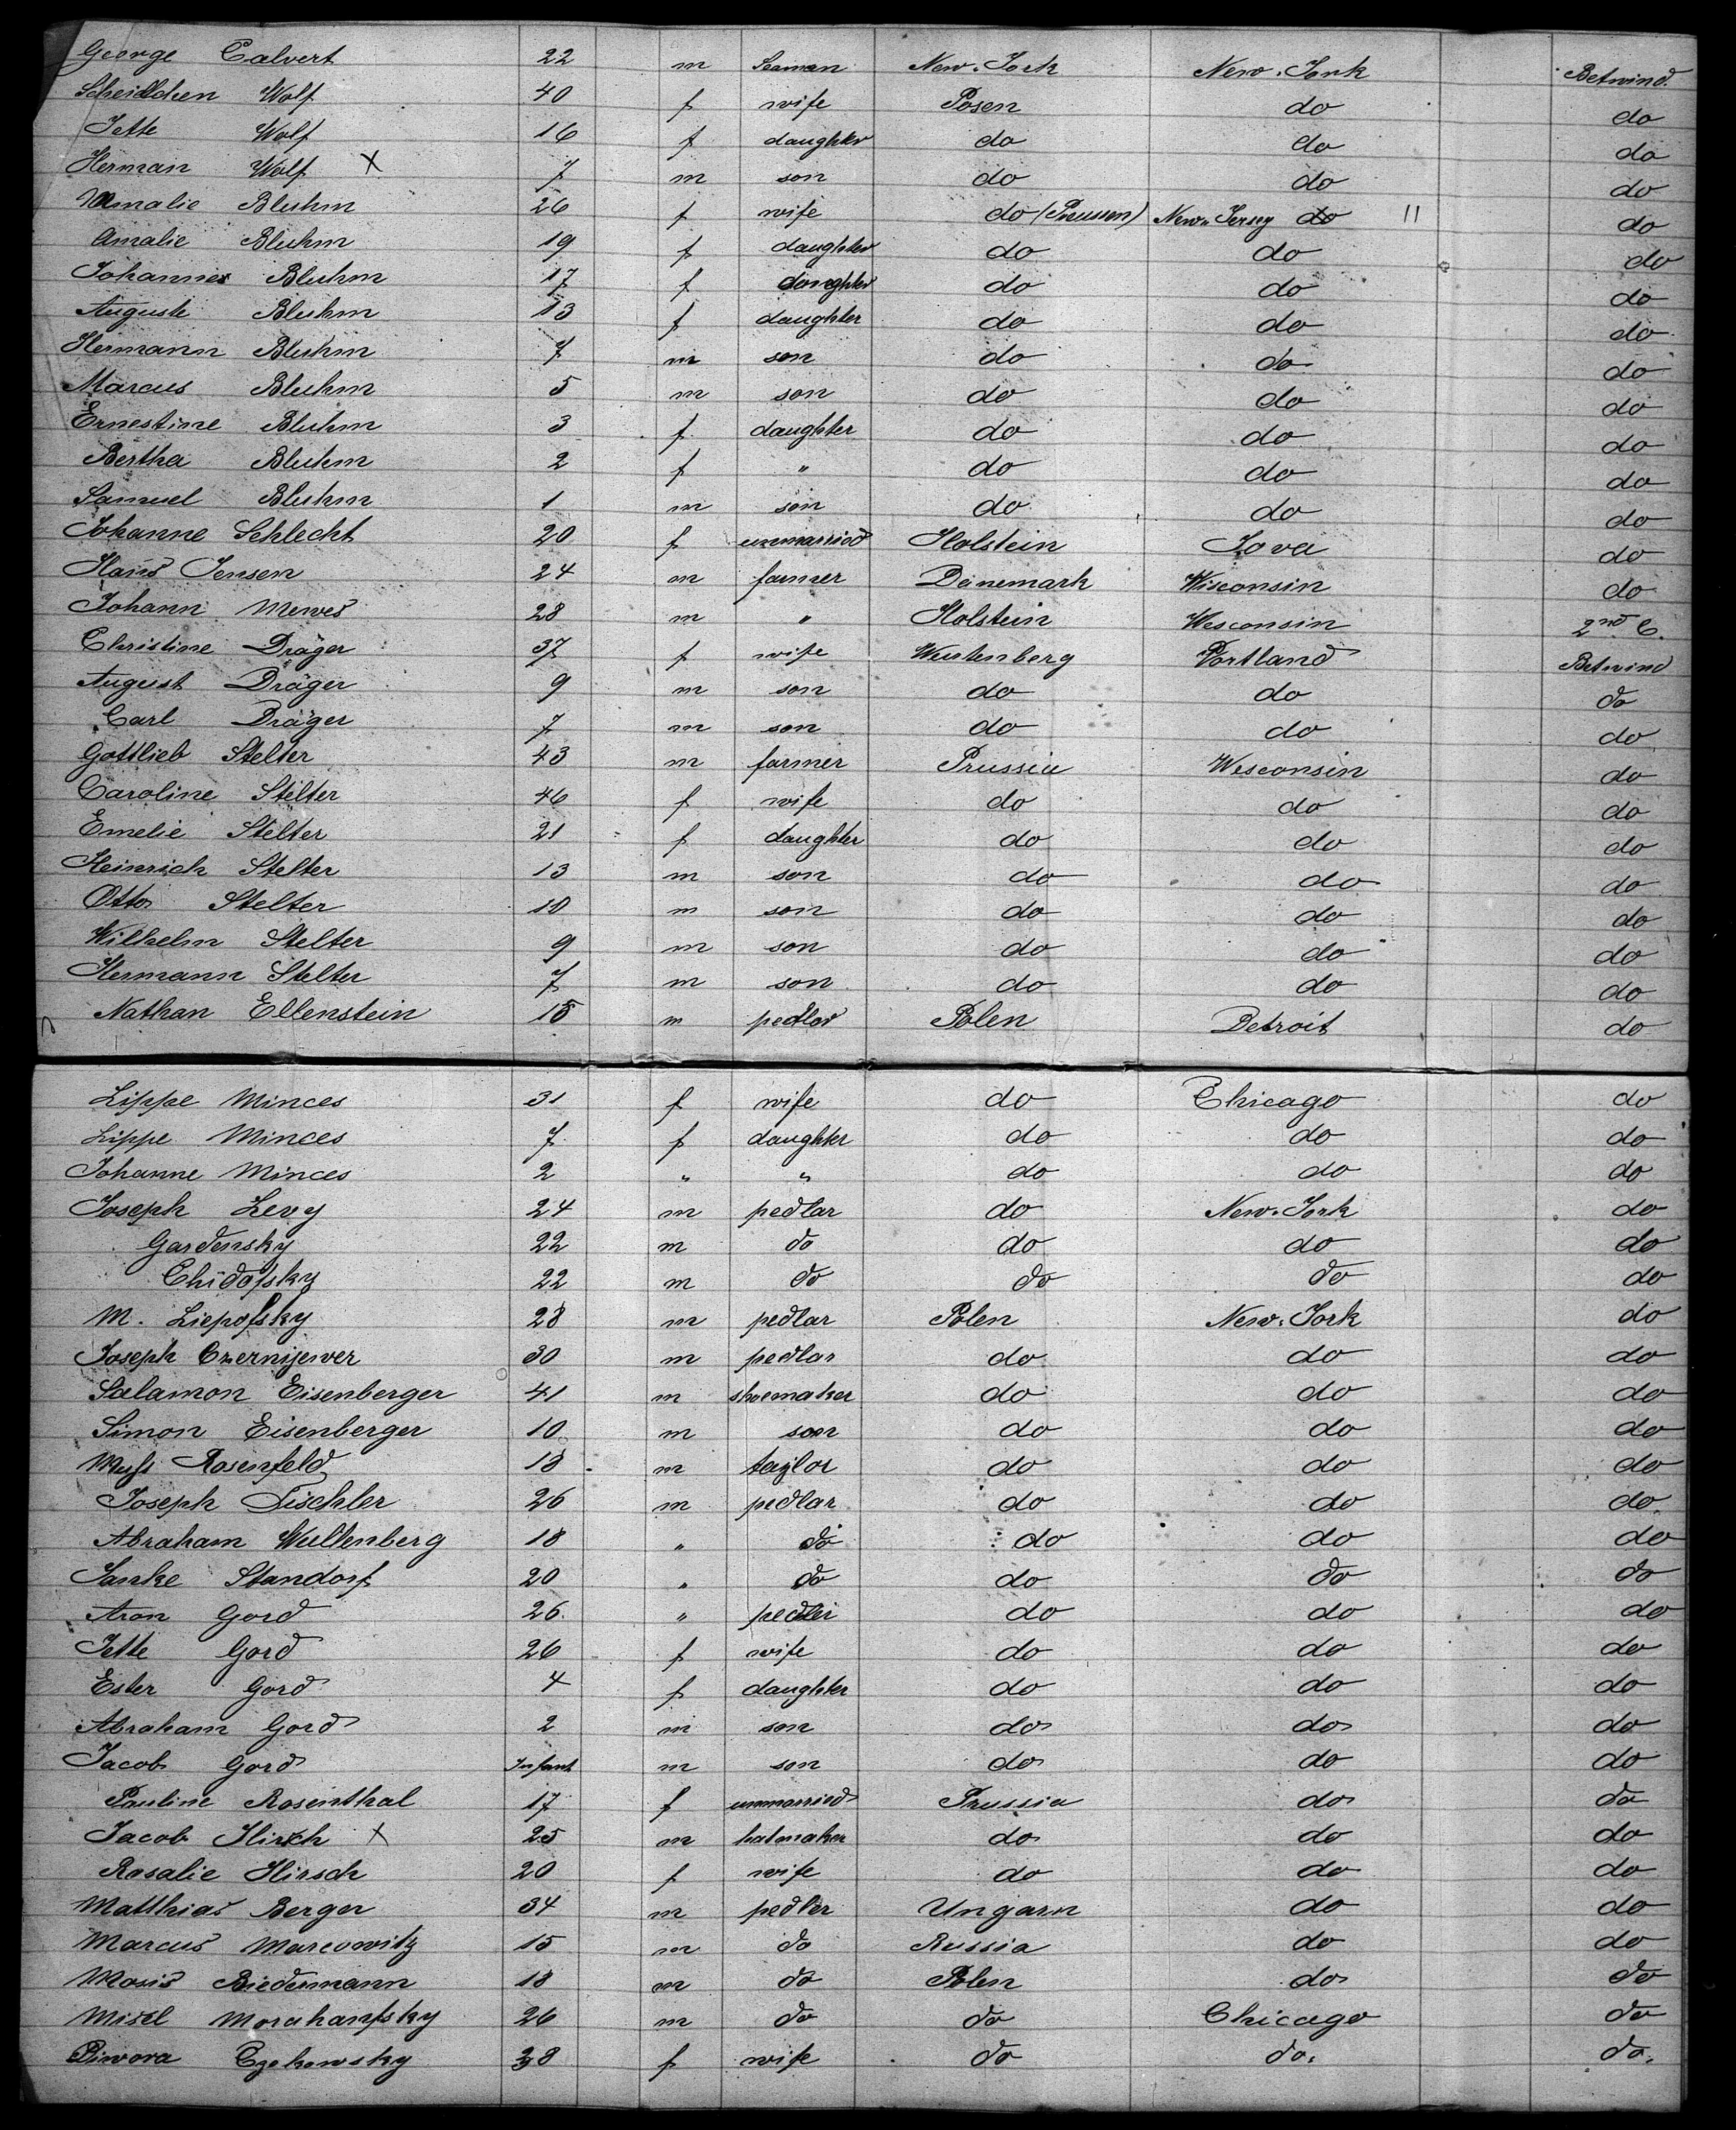 George Calvert 22 m Seaman New-York New-York Betwind.
Scheidlchen Wolf 40 f wife Posen do do
Jette Wolf 16 f daughter do do do
Herman Wolf X 7 m son do do do
Amalie Bluhm 26 f wife do (Preussen) New-Jersey do 11 do
Amalie Bluhm 19 f daughter do do do
Johannes Bluhm 17 f daughter do do do
Auguste Bluhm 13 f daughter do do do
Hermann Bluhm 7 m son do do do
Marcus Bluhm 5 m son do do do
Ernestine Bluhm 3 f daughter do do do
Bertha Bluhm 2 f " do do do
Samuel Bluhm 1 m son do do do
Johanne Schlecht 20 f unmarried Holstein Iova do
Hans Jensen 24 m farmer Danemark Wisconsin do
Johann Mewes 28 m " Holstein Wesconsin 2nd C.
Christine Dräger 37 f wife Wurtenberg Portland Betwind
August Dräger 9 m son do do do
Carl Dräger 7 m son do do do
Gottlieb Stelter 43 m farmer Prussia Wesconsin do
Caroline Stelter 46 f wife do do do
Emelie Stelter 21 f daughter do do do
Heinrich Stelter 13 m son do do do
Otto Stelter 10 m son do do do
Wilhelm Stelter 9 m son do do do
Hermann Stelter 7 m son do do do
Nathan Ellenstein 15 m pedlar Polen Detroit do
Lippe Minces 31 f wife do Chicago do
Lippe Minces 7 f daughter do do do
Johanne Minces 2 " " do do do
Joseph Levy 24 m pedlar do New-York do
Gardensky 22 m do do do do
Chidofsky 22 m do do do do
M. Liepofsky 28 m pedlar Polen New-York do
Joseph Czernijewer 30 m pedlar do do do
Salamon Eisenberger 41 m shoemaker do do do
Simon Eisenberger 10 m son do do do
Rosenfeld 18 m taylor do do do
Joseph Fischler 26 m pedlar do do do
Abraham Wultenberg 18 " do do do do
Janke Standorf 20 " do do do do
Aron Gord 26 " pedler do do do
Jette Gord 26 f wife do do do
Ester Gord 4 f daughter do do do
Abraham Gord 2 m son do do do
Jacob Gord Infant m son do do do
Pauline Rosenthal 17 f unmarried Prussia do do
Jacob Hirsch X 25 m hatmaker do do do
Rosalie Hirsch 20 f wife do do do
Matthias Berger 34 m pedler Ungarn do do
Marcus Marcowitz 15 m do Russia do do
Mosis Biedermann 18 m do Polen do do
Misel Morahanfsky 26 m do do Chicago do
Piwora Czehowsky 28 f wife do do. do.